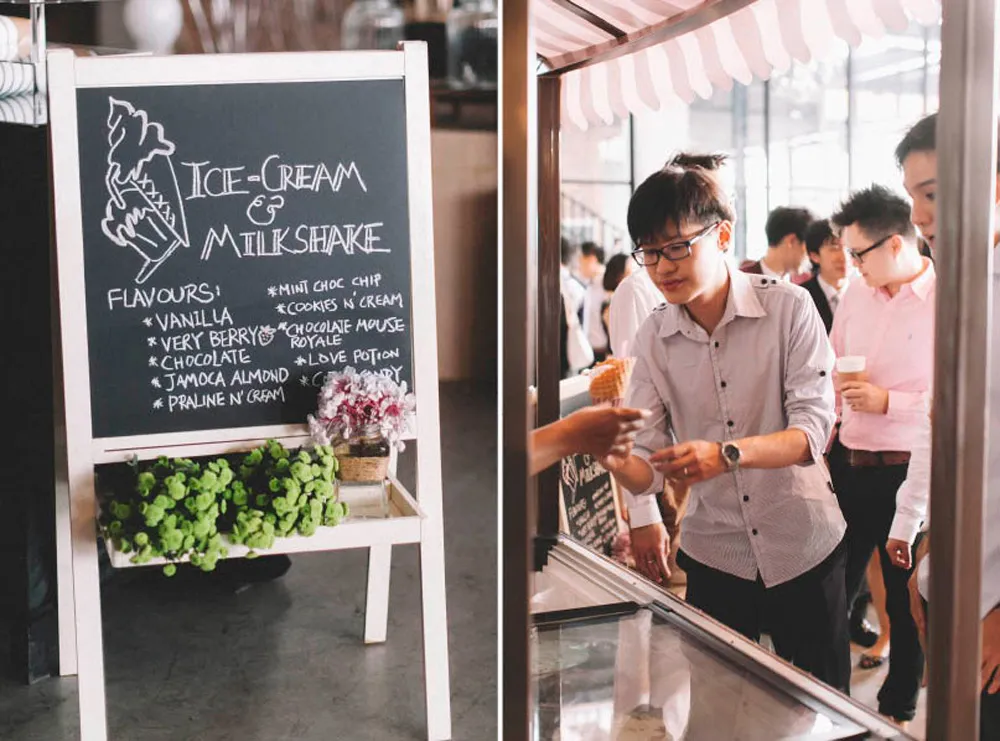 ICE-CREAM
&
MILKSHAKE
FLAVOURS:
*VANILLA
*VERY BERRY
*CHOCOLATE
*JAMOCA ALMOND
*PRALINE N' CREAM
*MINT CHOC CHIP
*COOKIES N' CREAM
*CHOCOLATE MOUSE
ROYALE
*LOVE POTION